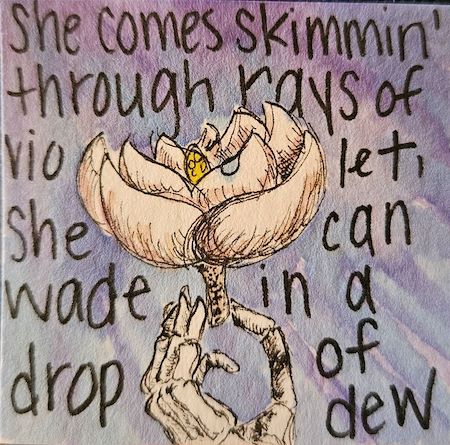 She comes skimmin'
through rays of
vio let,
She can
wade in a
drop of
dew